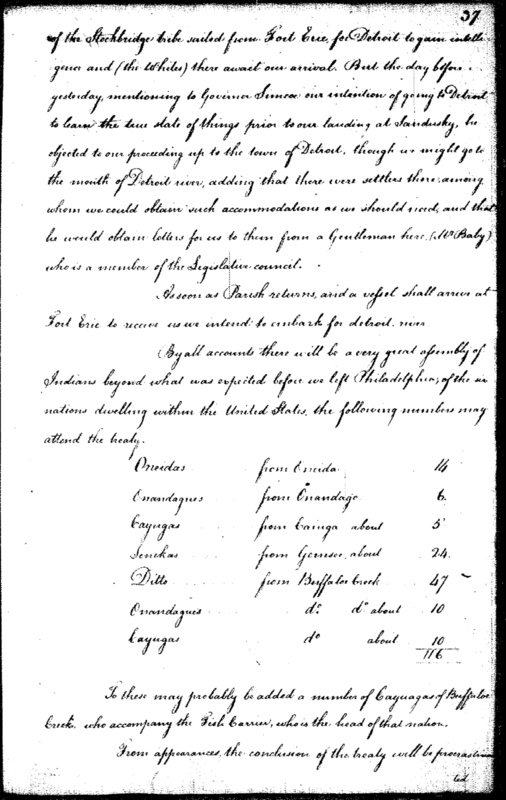 37
of the Stockbridge tribe sailed from Fort Erie, for Detroit to gain intelli
gence and (the Whites) there await our arrival. But the day before
yesterday, mentioning to Governor Simcoe our intention of going to Detroit
to learn the true state of things prior to our landing at Sandusky, he
objected to our proceeding up to the town of Detroit, though we might go to
the mouth of Detroit river, adding that there were settlers there, among
whom we could obtain such accommodations as we should need, and that
he would obtain letters for us to them from a Gentleman here, (Mr Baby)
who is a member of the Legislative council.
As soon as Parish returns, and a vessel shall arrive at
Fort Erie to receive us we intend to embark for detroit river
By all accounts there will be a very great assembly of
Indians beyond what was expected before we left Philadelphia; of the six
nations dwelling within the United States, the following numbers may
attend the treaty.
Oneidas from Oneida 14
Onandagues from Onandago 6
Cayugas from Cainga about 5
Senekas from Gennsee, about 24
Ditto from Buffaloe Creek 47
Onandagues do. do. about 10
Cayugas do about 10
116
To these may probably be added a number of Cayuagas of Buffaloe
Creek. who accompany the Fish Carrier, who is the head of that nation.
From appearances, the conclusion of the treaty will be procrastina
ted